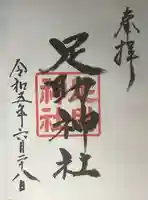 奉拝
足助神社
足助神社
令和五年六月二十八日